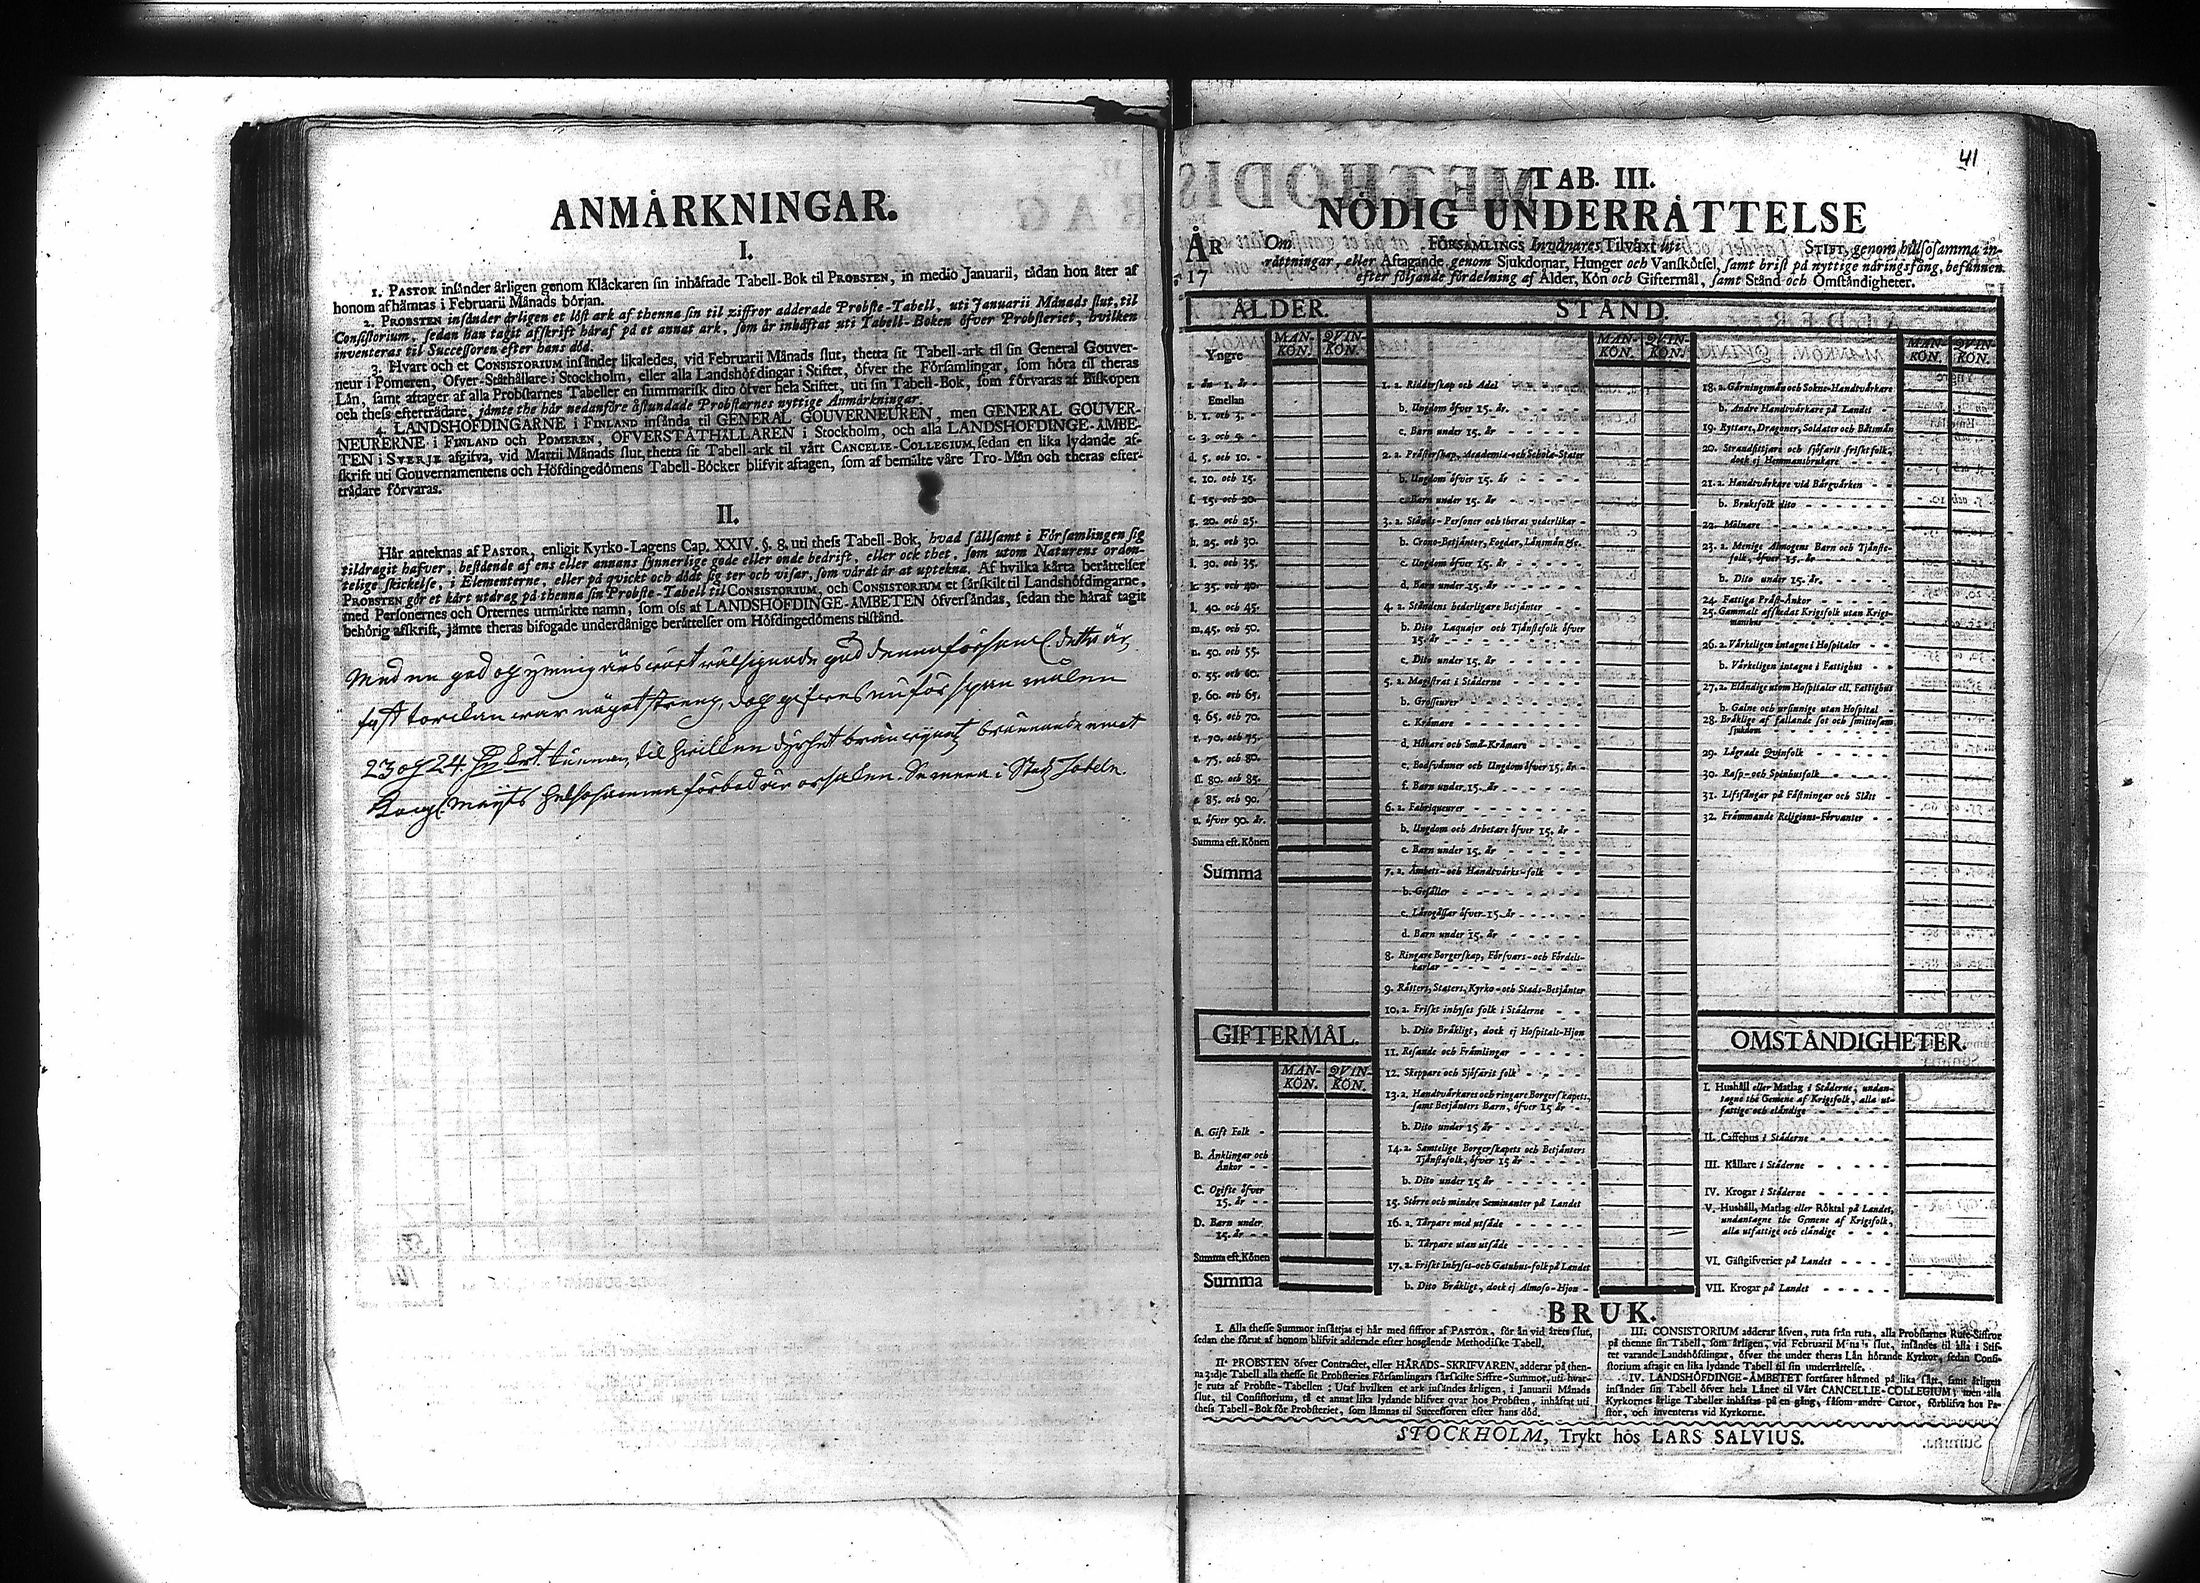 ANMÅRKNINGAR.
I.
1. PASTOR insånder årligen genom Klåckaren sin inhåftade Tabell-Bok til PROBSTEN, in medio Januarii, tådan hon åter af
honom afhåmtas i Februarii Månads början.
2. PROBSTEN insånder årligen et löst ark af thenna sin til ziffror adderade Probste-Tabell, uti Januarii Månads slut, til
Consistorium, sedan han tagit afskrift håraf på et annat ark, som år inhåftat uti Tabell-Boken öfver Probsteriet, hvilken
inventeras til Successoren efter hans död.
3. Hvart och et CONSISTORIUM insånder likaledes, vid Februarii Månads slut, thetta sit Tabell-ark til sin General Gouver-
neur i Pomeren, Öfver-Ståthållare i Stockholm, eller alla Landshöfdingar i Stiftet, öfver the Församlingar, som höra til theras
Lån, samt aftager af alla Probstarnes Tabeller en summarisk dito öfver hela Stiftet, uti sin Tabell-Bok, som förvaras af Biskopen
och thess eftertrådare, jåmte the hår nedanföre åstundade Probstarnes nyttige Anmårkningar.
4. LANDSHÖFDINGARNE i FINLAND insånda til GENERAL GOUVERNEUREN, men GENERAL GOUVER-
NEURERNE i FINLAND och POMEREN, ÖFVERSTÅTHÅLLAREN i Stockholm, och alla LANDSHÖFDINGE-ÅMBE-
TEN i SVERJE afgifva, vid Martii Månads slut, thetta sit Tabell-ark til vårt CANCELIE-COLLEGIUM, sedan en lika lydande af-
skrift uti Gouvernamentens och Höfdingedömens Tabell-Böcker blifvit aftagen, som af bemålte våre Tro-Mån och theras efter-
trådare förvaras.
II.
Hår anteknas af PASTOR, enligit Kyrko-Lagens Cap. XXIV. §. 8. uti thess Tabell-Bok, hvad sållsamt i Församlingen sig
tildragit hafver, bestående af ens eller annans synnerlige gode eller onde bedrift, eller ock thet, som utom Naturens orden-
telige skickelse, i Elementerne, eller på qvickt och dödt sig ter och visar, som vårdt år at uptekna. Af hvilka kårta beråttelser
PROBSTEN gör et kårt utdrag på thenna sin Probste-Tabell til CONSISTORIUM, och CONSISTORIUM et sårskilt til Landshöfdingarne,
med Personernes och Orternes utmårkte namn, som oss af LANDSHÖFDINGE-ÅMBETEN öfversåndas, sedan the håraf tagit
behörig afskrift, jåmte theras bifogade underdånige beråttelser om Höfdingedömens tilstånd.
Med en god og ymnig års växt välsignade gud denna församl. detta år
fast torckan war något streng, dog gefves nu för span målen
23 og 24. kr t. tunnan, til hvillken dyrhet brännande emot
Kongl. Mayts helsosamma förbud är orsaken. Summa i Stads Tabeln.
41
TAB. III.
NÖDIG UNDERRÅTTELSE
ÅR
17
Om FÖRSAMLINGS Invånares Tilvåxt uti STIFT, genom hålsosamma in-
råttningar, eller Aftagande genom Sjukdomar, Hunger och Vanskötsel, samt brist på nyttige nåringsfång, befunnen
efter följande fördelning af Ålder, Kön och Giftermål, samt Stånd och Omståndigheter.
ÅLDER.
MAN-KÖN. QVIN-KÖN.
Yngre
a. ån 1. år -
Emellan
b. 1. och 3. -
c. 3. och 5. -
d. 5. och 10. -
e. 10. och 15.
f. 15. och 20.
g. 20. och 25.
h. 25. och 30.
i. 30. och 35.
k. 35. och 40.
l. 40. och 45.
m. 45. och 50.
n. 50. och 55.
o. 55. och 60.
p. 60. och 65.
q. 65. och 70.
r. 70. och 75.
s. 75. och 80.
ff. 80. och 85.
t. 85. och 90.
u. öfver 90. år.
Summa eft. Könen
Summa
GIFTERMÅL.
MAN-KÖN. QVIN-KÖN.
A. Gift Folk -
B. Ånklingar och
Ånkor - -
C. Ogifte öfver
15. år - -
D. Barn under
15. år - -
Summa eft. Könen
Summa
STÅND.
MAN-KÖN. QVIN-KÖN.
1. a. Ridderskap och Adel
b. Ungdom öfver 15. år
c. Barn under 15. år
2. a. Pråsterskap, Academia- och Schola-Stater
b. Ungdom öfver 15. år
c. Barn under 15. år
3. a. Stånds-Personer och theras vederlikar
b. Crono-Betjånter, Fogdar, Lånsmån &c.
c. Ungdom öfver 15. år
d. Barn under 15. år
4. a. Ståndens hederligare Betjånter
b. Dito Laquajer och Tjånstefolk öfver
15. år
c. Dito under 15. år
5. a. Magistrat i Ståderne
b. Grosseurer
c. Kråmare
d. Hökare och Små-Kråmare
e. Bodsvånner och Ungdom öfver 15. år
f. Barn under 15. år
6. a. Fabriqueurer
b. Ungdom och Arbetare öfver 15. år
c. Barn under 15. år
7. a. Åmbets- och Handtvårks-folk
b. Gesåller
c. Lårogåssar öfver 15 år
d. Barn under 15. år
8. Ringare Borgerskap, Försvars- och Fördels-
karlar
9. Råtters, Staters, Kyrko- och Stads-Betjånter
10. a. Friskt inhyses folk i Ståderne
b. Dito Bråkligt, dock ej Hospitals-Hjon
11. Resande och Fråmlingar
12. Skeppare och Sjöfarit folk
13. a. Handtvårkares och ringare Borgerskapets,
samt Betjånters Barn, öfver 15 år
b. Dito under 15 år
14. a. Samtelige Borgerskapets och Betjånters
Tjånstefolk, öfver 15 år
b. Dito under 15 år
15. Större och mindre Seminanter på Landet
16. a. Tårpare med utsåde
b. Tårpare utan utsåde
17. a. Friskt Inhyses- och Gatuhus-folk på Landet
b. Dito Bråkligt, dock ej Almoso-Hjon
MAN-KÖN. QVIN-KÖN.
18. a. Gårningsmån och Sokne-Handtvårkare
b. Andre Handtvårkare på Landet
19. Ryttare, Dragoner, Soldater och Båtsmån
20. Strandsittjare och sjöfarit friskt folk,
dock ej Hemmansbrukare
21. a. Handtvårkare vid Bårgvårken
b. Bruksfolk dito
22. Mölnare
23. a. Menige Almogens Barn och Tjånste-
folk, öfver 15. år
b. Dito under 15. år.
24. Fattiga Pråst-Ånkor
25. Gammalt afskedat Krigsfolk utan Krigs-
manshus
26. a. Vårkeligen intagne i Hospitaler
b. Vårkeligen intagne i Fattighus
27. a. Elåndige utom Hospitaler ell. Fattighus
b. Galne och ursinnige utan Hospital
28. Bråklige af fallande sot och smittosam
sjukdom
29. Lågrade Qvinfolk
30. Rasp- och Spinhusfolk
31. Lifsfångar på Fåstningar och Slått
32. Fråmmande Religions-Förvanter
OMSTÅNDIGHETER.
I. Hushåll eller Matlag i Ståderne, undan-
tagne the Gemene af Krigsfolk, alla ut-
fattige och elåndige
II. Caffehus i Ståderne
III. Kållare i Ståderne
IV. Krogar i Ståderne
V. Hushåll, Matlag eller Röktal på Landet,
undantagne the Gemene af Krigsfolk,
alla utfattige och elåndige
VI. Gåstgifverier på Landet
VII. Krogar på Landet
BRUK.
I. Alla thesse Summor insåttjas ej hår med siffror af PASTOR, för ån vid årets slut,
sedan the förut af honom blifvit adderade efter hosgående Methodiske Tabell.
II. PROBSTEN öfver Contractet, eller HÅRADS-SKRIFVAREN, adderar på then-
na 3:dje Tabell alla thesse sit Probsteries Församlingars sårskilte Siffre-Summor, uti hvar-
je ruta af Probste-Tabellen: Utaf hvilken et ark insåndes årligen, i Januarii Månads
slut, til Consistorium, tå et annat lika lydande blifver qvar hos Probsten, inhåftat uti
thess Tabell-Bok för Probsteriet, som låmnas til Successoren efter hans död.
III. CONSISTORIUM adderar åfven, ruta från ruta, alla Probstarnes Rute-Siffror
på thenne sin Tabell, som årligen, vid Februarii Månads slut, insåndes til alla i Stif-
tet varande Landshöfdingar, öfver the under theras Lån hörande Kyrkor, sedan Consi-
storium aftagit en lika lydande Tabell til sin underråttelse.
IV. LANDSHÖFDINGE-ÅMBETET fortfarer hårmed på lika sått, samt årligen
insånder sin Tabell öfver hela Lånet til Vårt CANCELLIE-COLLEGIUM; men alla
Kyrkornes årlige Tabeller inhåftas på en gång, såsom andre Cartor, förblifva hos Pa-
stor, och inventeras vid Kyrkorne.
STOCKHOLM, Trykt hos LARS SALVIUS.